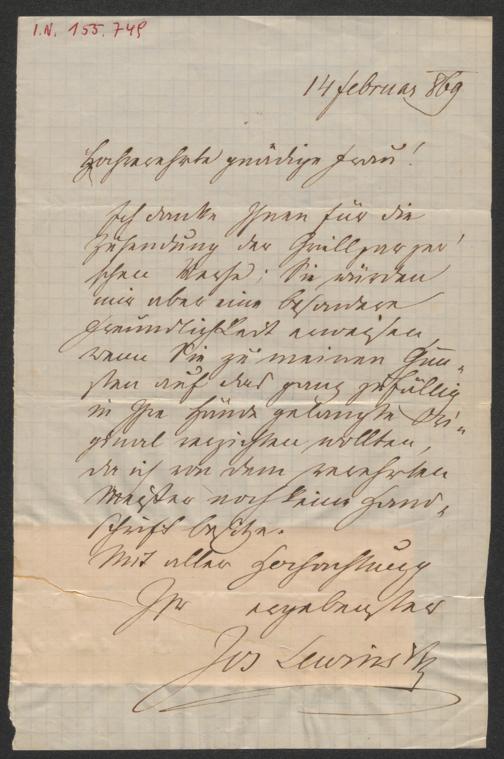 I.N. 155.749
14 februar 869
Hochverehrte gnädige Frau!
Ich danke Ihnen für die
Zusendung der Grillparzer'
schen Verse; Sie würden
mir aber eine besondere
Freundlichkeit erweisen
wenn Sie zu meinen Gun-
sten auf das ganz zufällig
in Ihre Hände gelangte Ori-
ginal verzichten wollten,
da ich von dem verehrten
Meister noch keine Hand-
schrift besitze.
Mit aller Hochachtung
Ihr ergebenster
Jos Lewinsky